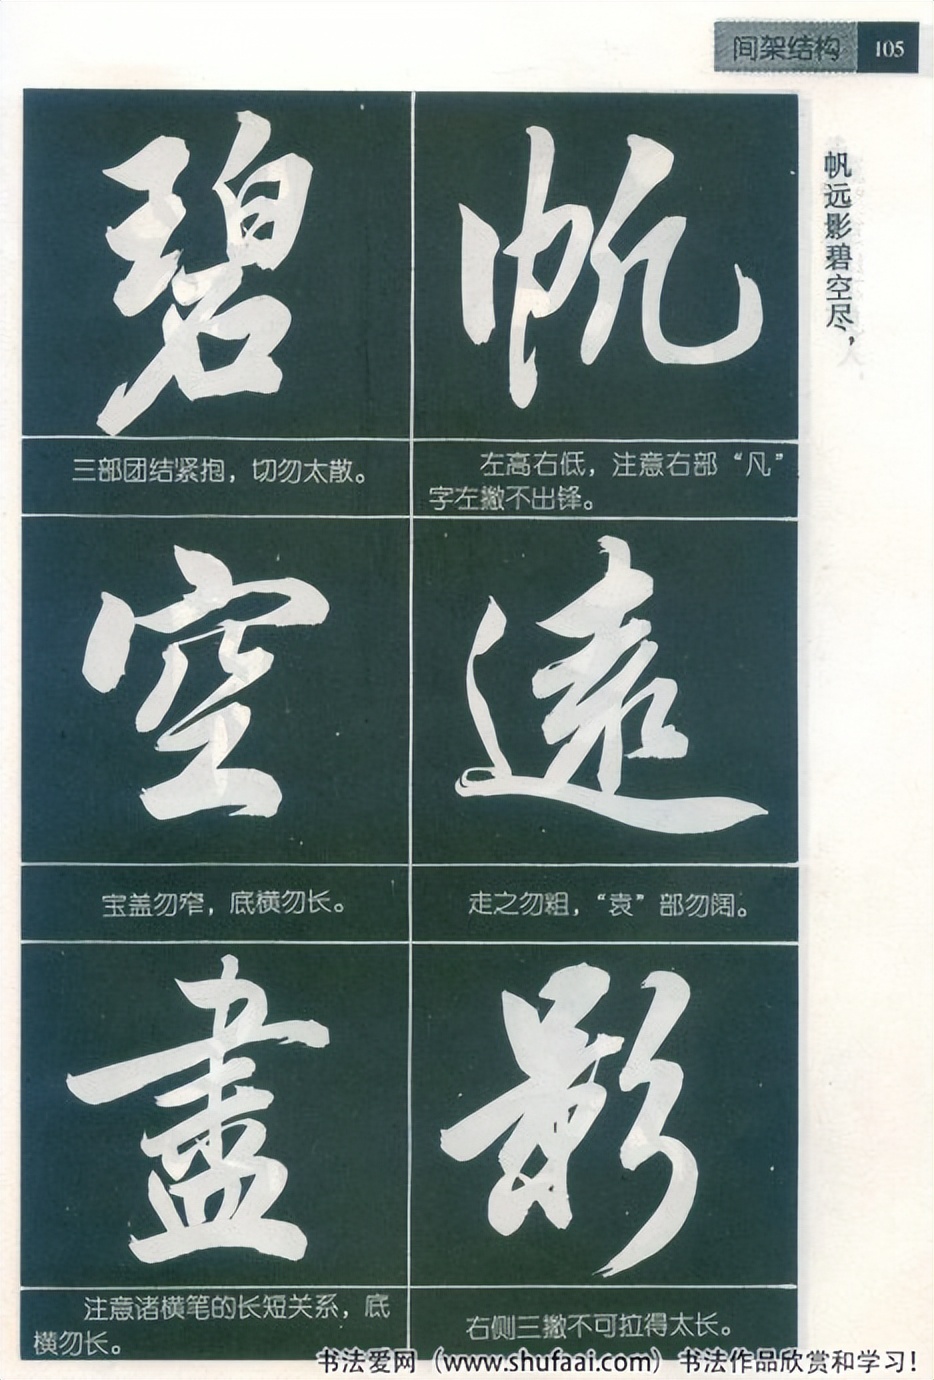 间架结构 105
帆远影碧空尽，
帆
左高右低，注意右部“凡”
字左撇不出锋。
遠
走之勿粗，“袁”部勿阔。
影
右侧三撇不可拉得太长。
碧
三部团结紧抱，切勿太散。
空
宝盖勿窄，底横勿长。
盡
注意诸横笔的长短关系，底
横勿长。
书法爱网（www.shufaai.com）书法作品欣赏和学习！